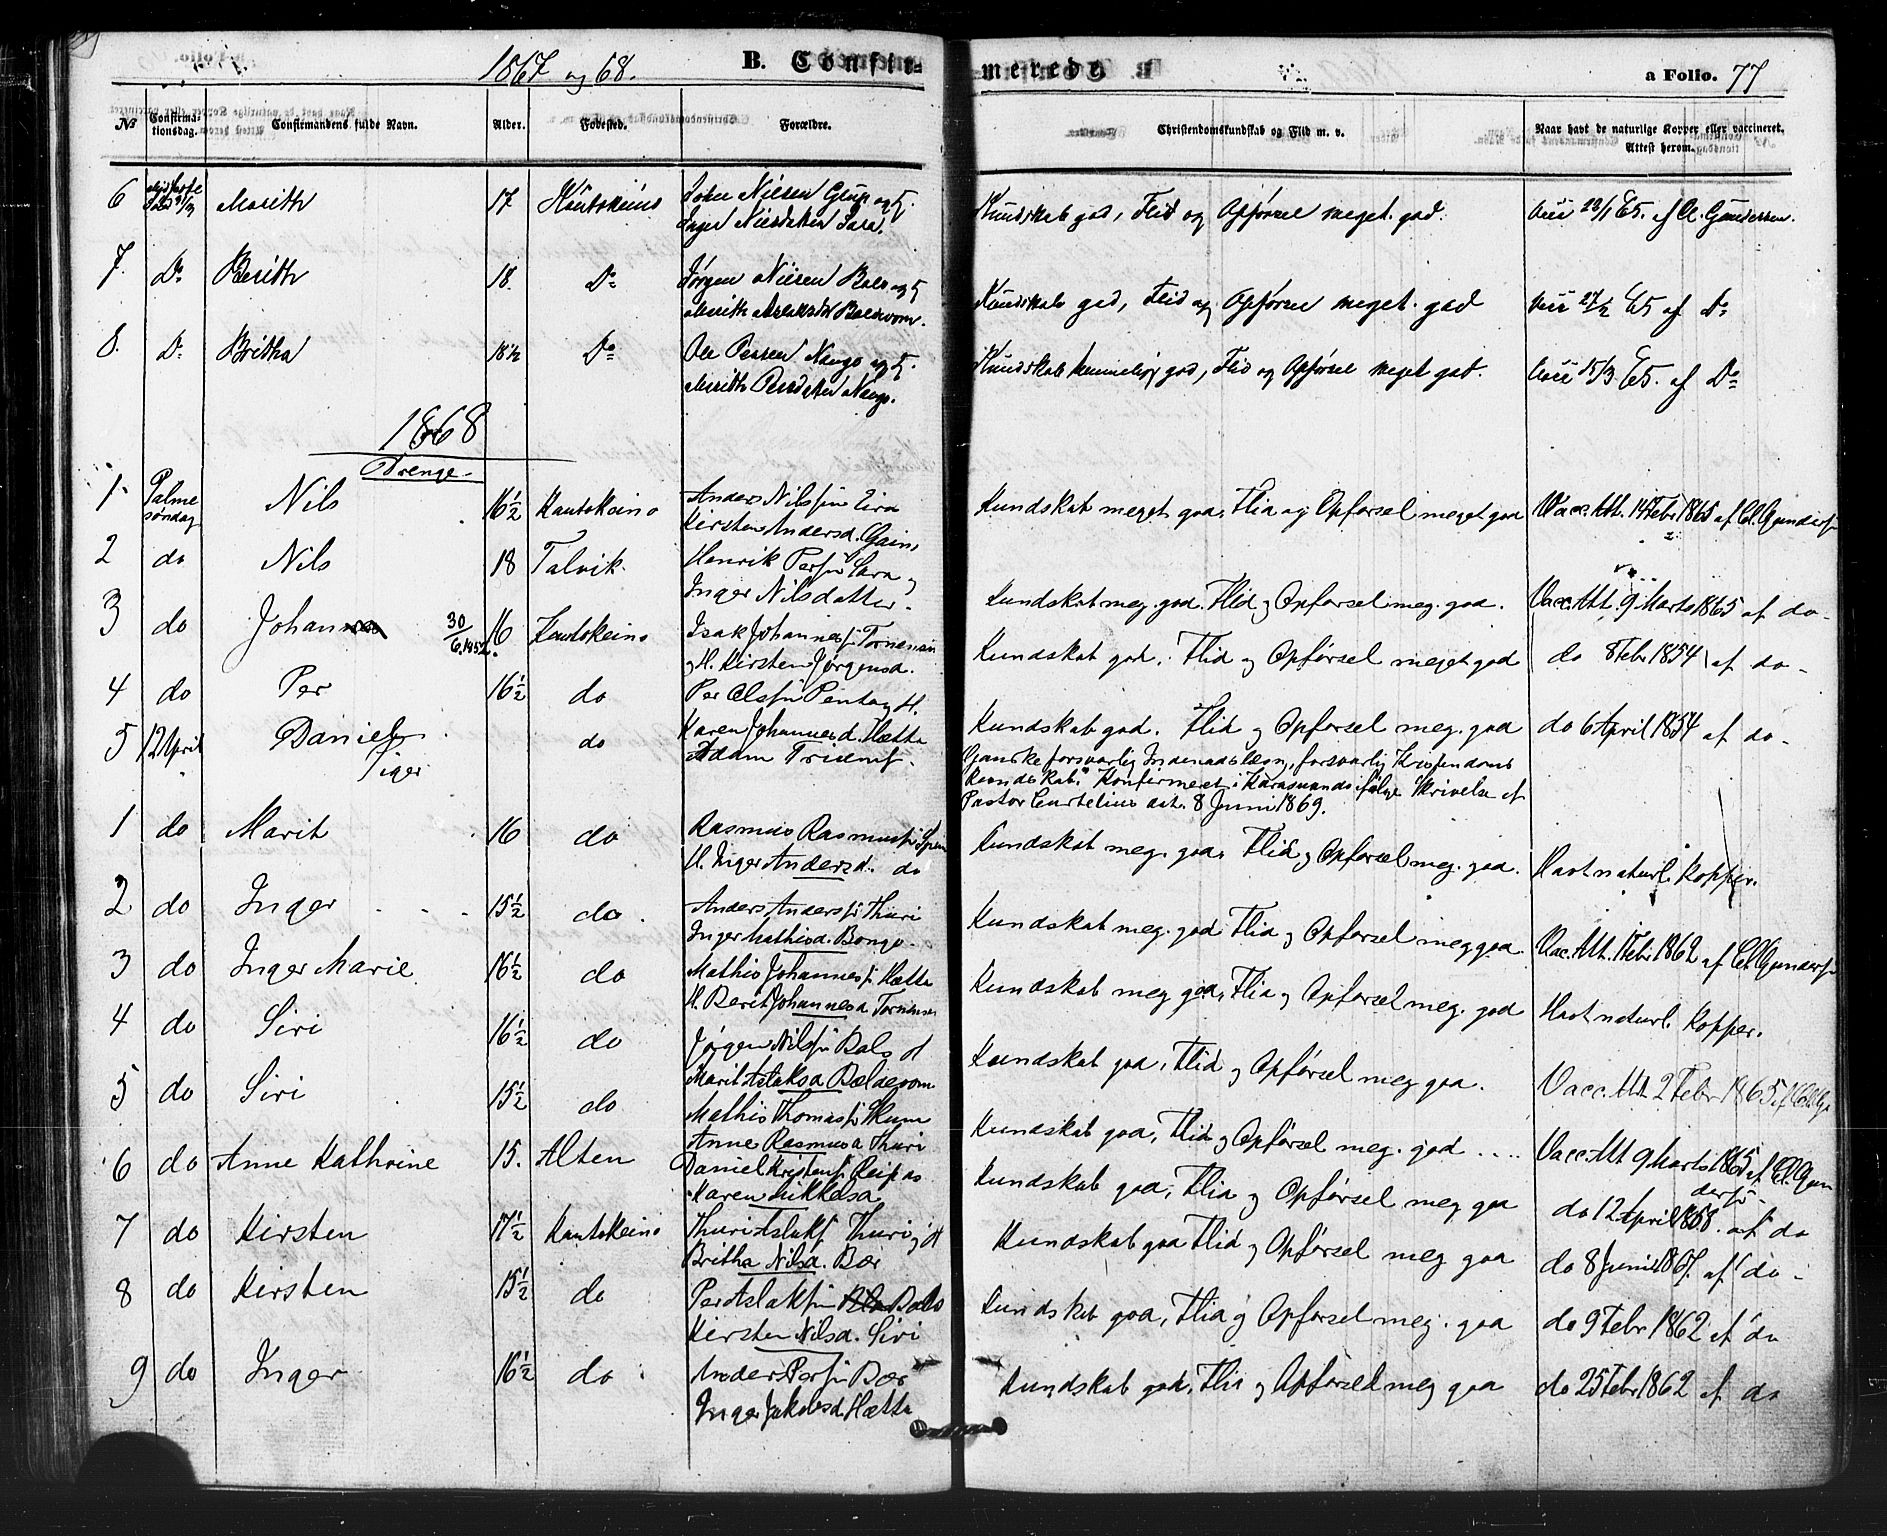 1867 og 68.
B. Confirmerede.
a Folio. 77
No
Confirmationsdag.
Confirmandens fulde Navn.
Alder.
Fødested.
Forældre.
Christendomskundskab og Flid m. v.
Naar havt de naturlige Kopper eller vaccineret. Attest herom.
6 Marith 17 Kautokeino Nilsen Gaup og H. Kundskab god, Flid og Opførsel meget god. 28/1 65. af Cl. Gundersen.
Inger Nilsdatter Sara.
7. Do Berith 18. Do Jørgen Nilsen Bals og H Kundskab god, Flid og Opførsel meget god 27/2 65 af Do
Marith Aslaksdtr Baldevom.
8. Do Britha 18½ Do Ole Persen Nango og H. Kundskab temmelig god, Flid og Opførsel meget god. 15/3 65. af Do
Marith Persdatter Nango.
1868
Drenge.
1 Palmesøndag Nils 16½ Kautokeino Anders Nilssøn Eira Kundskab meget god, Flid og Opførsel meget god Vacc. Att. 14 Febr 1865 af Cl. Gunders
Kirsten Andersd. Gain
2 do Nils 18 Talvik Henrik Persøn Sara og Kundskab meg. god. Flid og Opførsel meg. god. Vacc. Att. 9 Marts 1865 af do
Inger Nilsdatter
3 do Johan 30/6.1852. 16 Kautokeino Isak Johannes Tornensin Kundskab god, Flid og Opførsel meget god do 8 Febr 1854 af do
og H. Kirsten Jørgensd.
4 do Per 16½ do Per Olssøn Penta og H. Kundskab god. Flid og Opførsel meg. god do 6 April 1854 af do
Karen Johannesd. Hætta
5 12 April Daniel do Adam Trisent Ganske forsvarlig Indenadslæsn, forsvarlig Kristendoms
Kundskab. Konfirmeret i Karasuando ifølge Skrivelse af
Pastor Curtelius dat. 8 Juni 1869.
Piger
1 do Marit 16 do Rasmus Rasmus Spein Kundskab meg. god, Flid og Opførsel meg. god. Havt naturl. Kopper.
H. Inger Andersd. do
2 do Inger 15½ do Anders Anders Thuri Kundskab meg. god Flid og Opførsel meg god Vac. Att. 1 Febr 1862 af Cl. Gunders
Inger Mathisd. Bongo
3 do Inger Marie 16½ do Mathis Johannes Hætta Kundskab meg god, Flid og Opførsel meg. god Havt naturl. Kopper.
H. Berit Johannesd. Tornensis
4 do Siri 16½ do Jørgen Nilssøn Bals og H Kundskab god, Flid og Opførsel meg god. Vacc. Att 2 Febr 1865 af
Marit Aslaksd Baldevom
5 do Siri 15½ do Mathis Thomas Skum Kundskab god, Flid og Opførsel meg. god Vacc. Att 9 Marts 1865 af Cl. Gundersø
Anne Rasmusd Thuri
6 do Anne Kathrine 15. Alten Daniel Kristens Reipas Kundskab god, Flid og Opførsel meg god do 12 April 1858. af do
Karen Mikkelsd
7 do Kirsten 17½ Kautokeino Thuri Aslaks Thuri og H Kundskab god Flid og Opførsel meg god do 8 Juni 1867. af do
Britha Nilsd. Bær
8 do Kirsten 15½ do Per Aslaksøn Bals Kundskab god, Flid og Opførsel meg. god do 9 Febr 1862 af do
Kirsten Nilsd. Siri
9 do Inger 16½ do Anders Persøn Bær Kundskab god, Flid og Opførsel meg god do 25 Febr 1862 af do
Inger Jakobsd Hætta